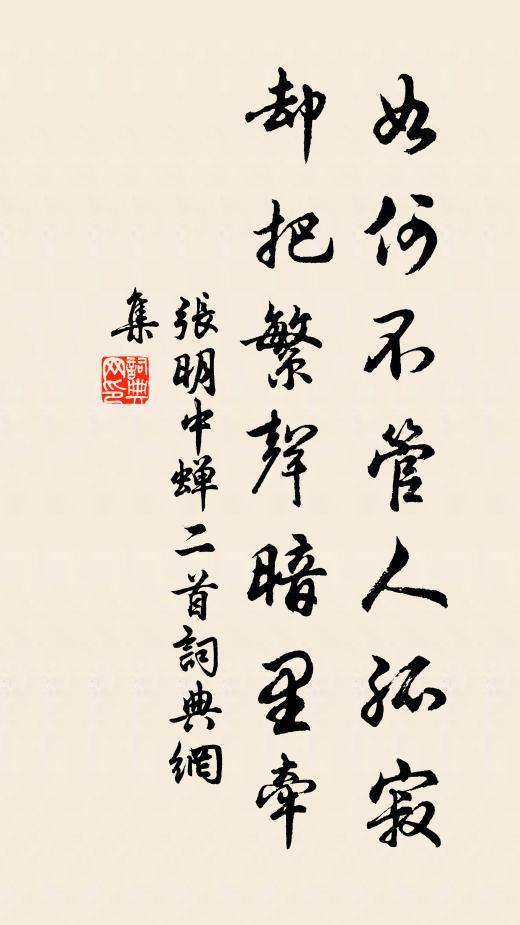 如何不管人孤寂
却把繁聲暗里牽
張明中蝉二首詞典網
集
詞典
网印